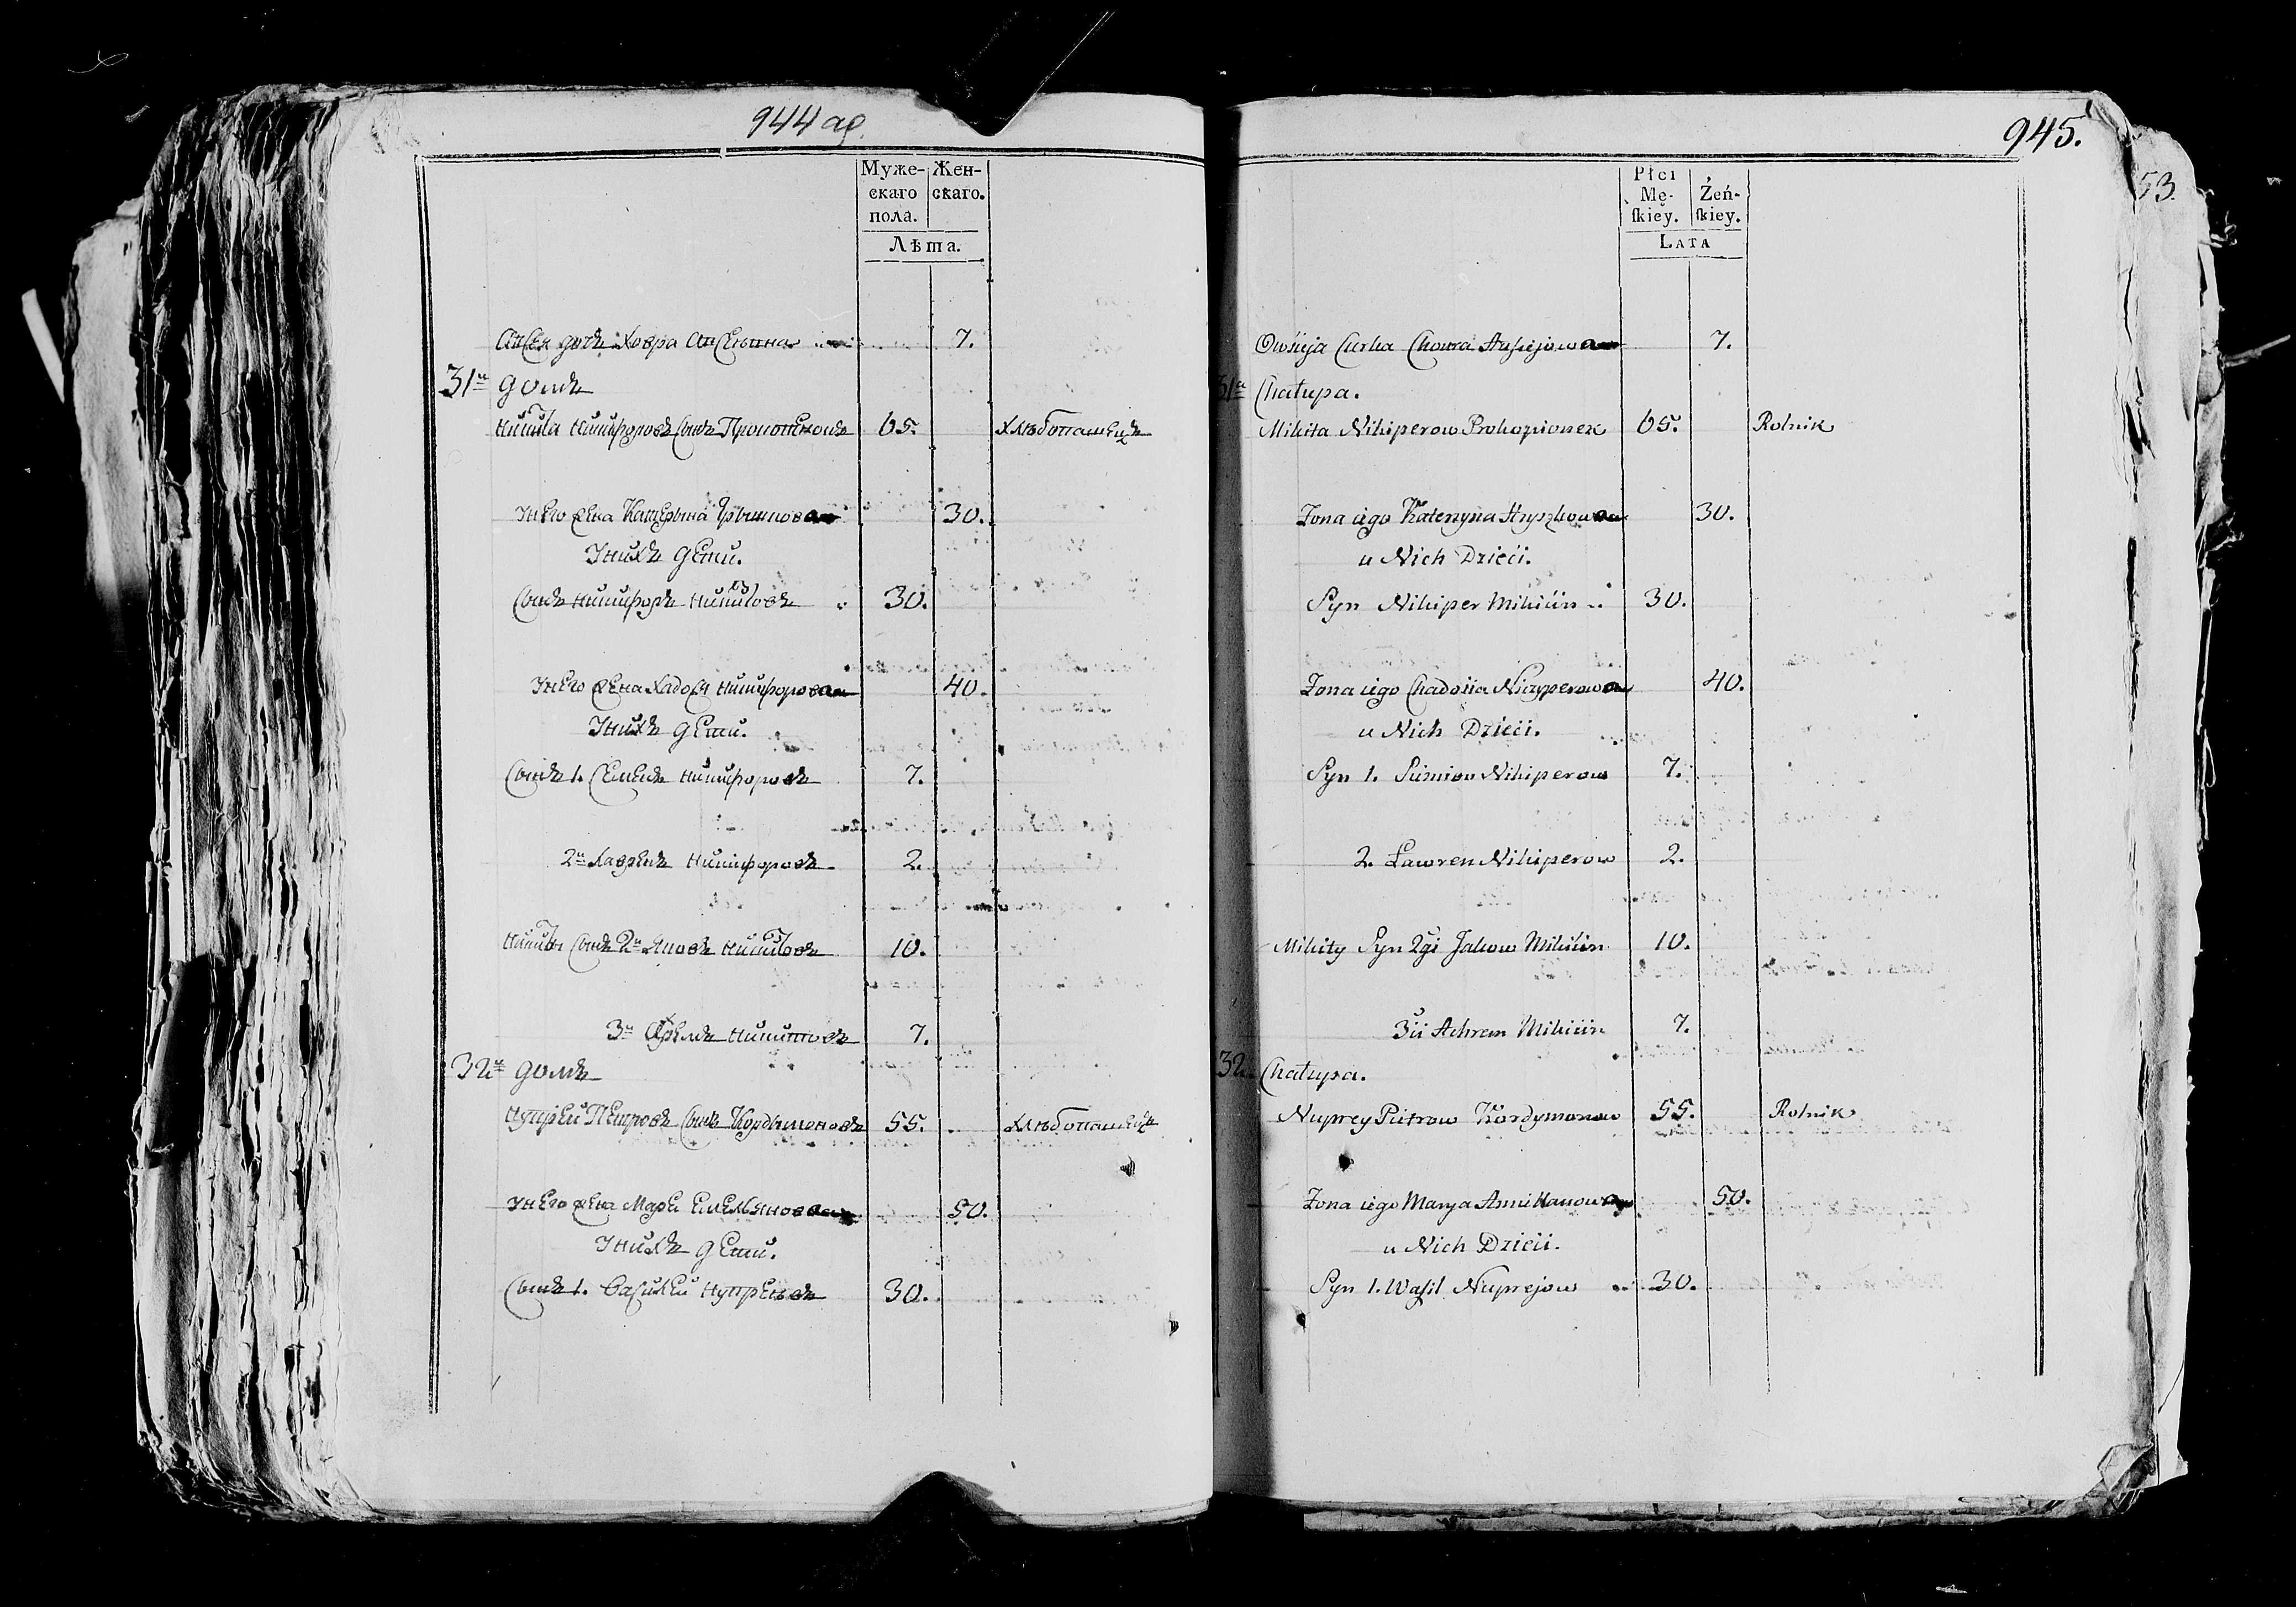 944 об.
Муже- Жен-
скаго скаго.
пола.
Лѣта.
дочь Ховра 7.
31й домъ
Никита Никифоровъ Сынъ Прокопенокъ 65. хлѣбопашецъ
У него жена Катерына Грышкова 30.
У нихъ дети.
Сынъ Никифоръ Никитовъ 30.
У него жена Хадося Никифорова 40.
У нихъ дети.
Сынъ 1. Семенъ Никифоровъ 7.
2й Лавренъ Никифоровъ 2.
Никиты Сынъ 2й Яковъ Никитовъ 10.
3й Ахремъ Никитовъ 7.
32й домъ
Нупрей Петровъ Сынъ Кордымоновъ 55. хлѣбопашецъ
У него жена Маря Емельянова 50.
У нихъ дети.
Сынъ 1. Василей Нупреевъ 30.
945.
53.
Płci
Mę- Żeń-
ſkiey. ſkiey.
LATA
Curka Chowra 7.
31a Chałupa.
Mikita Nikiperow Prokopionek 65. Rolnik
Żona iego Kateryna Hryszkowa 30.
u Nich Dzieci.
Syn Nikiper Mikicin 30.
Żona iego Chadosia 40.
u Nich Dzieci.
Syn 1. Simion Nikiperow 7.
2. Ławren Nikiperow 2.
Mikity Syn 2gi Jakow Mikicin 10.
3ci Achrem Mikicin 7.
32. Chałupa.
Nuprey Pietrow Kordymonow 55. Rolnik
Żona iego Marya 50.
u Nich Dzieci.
Syn 1. Waſil Nuprejow 30.